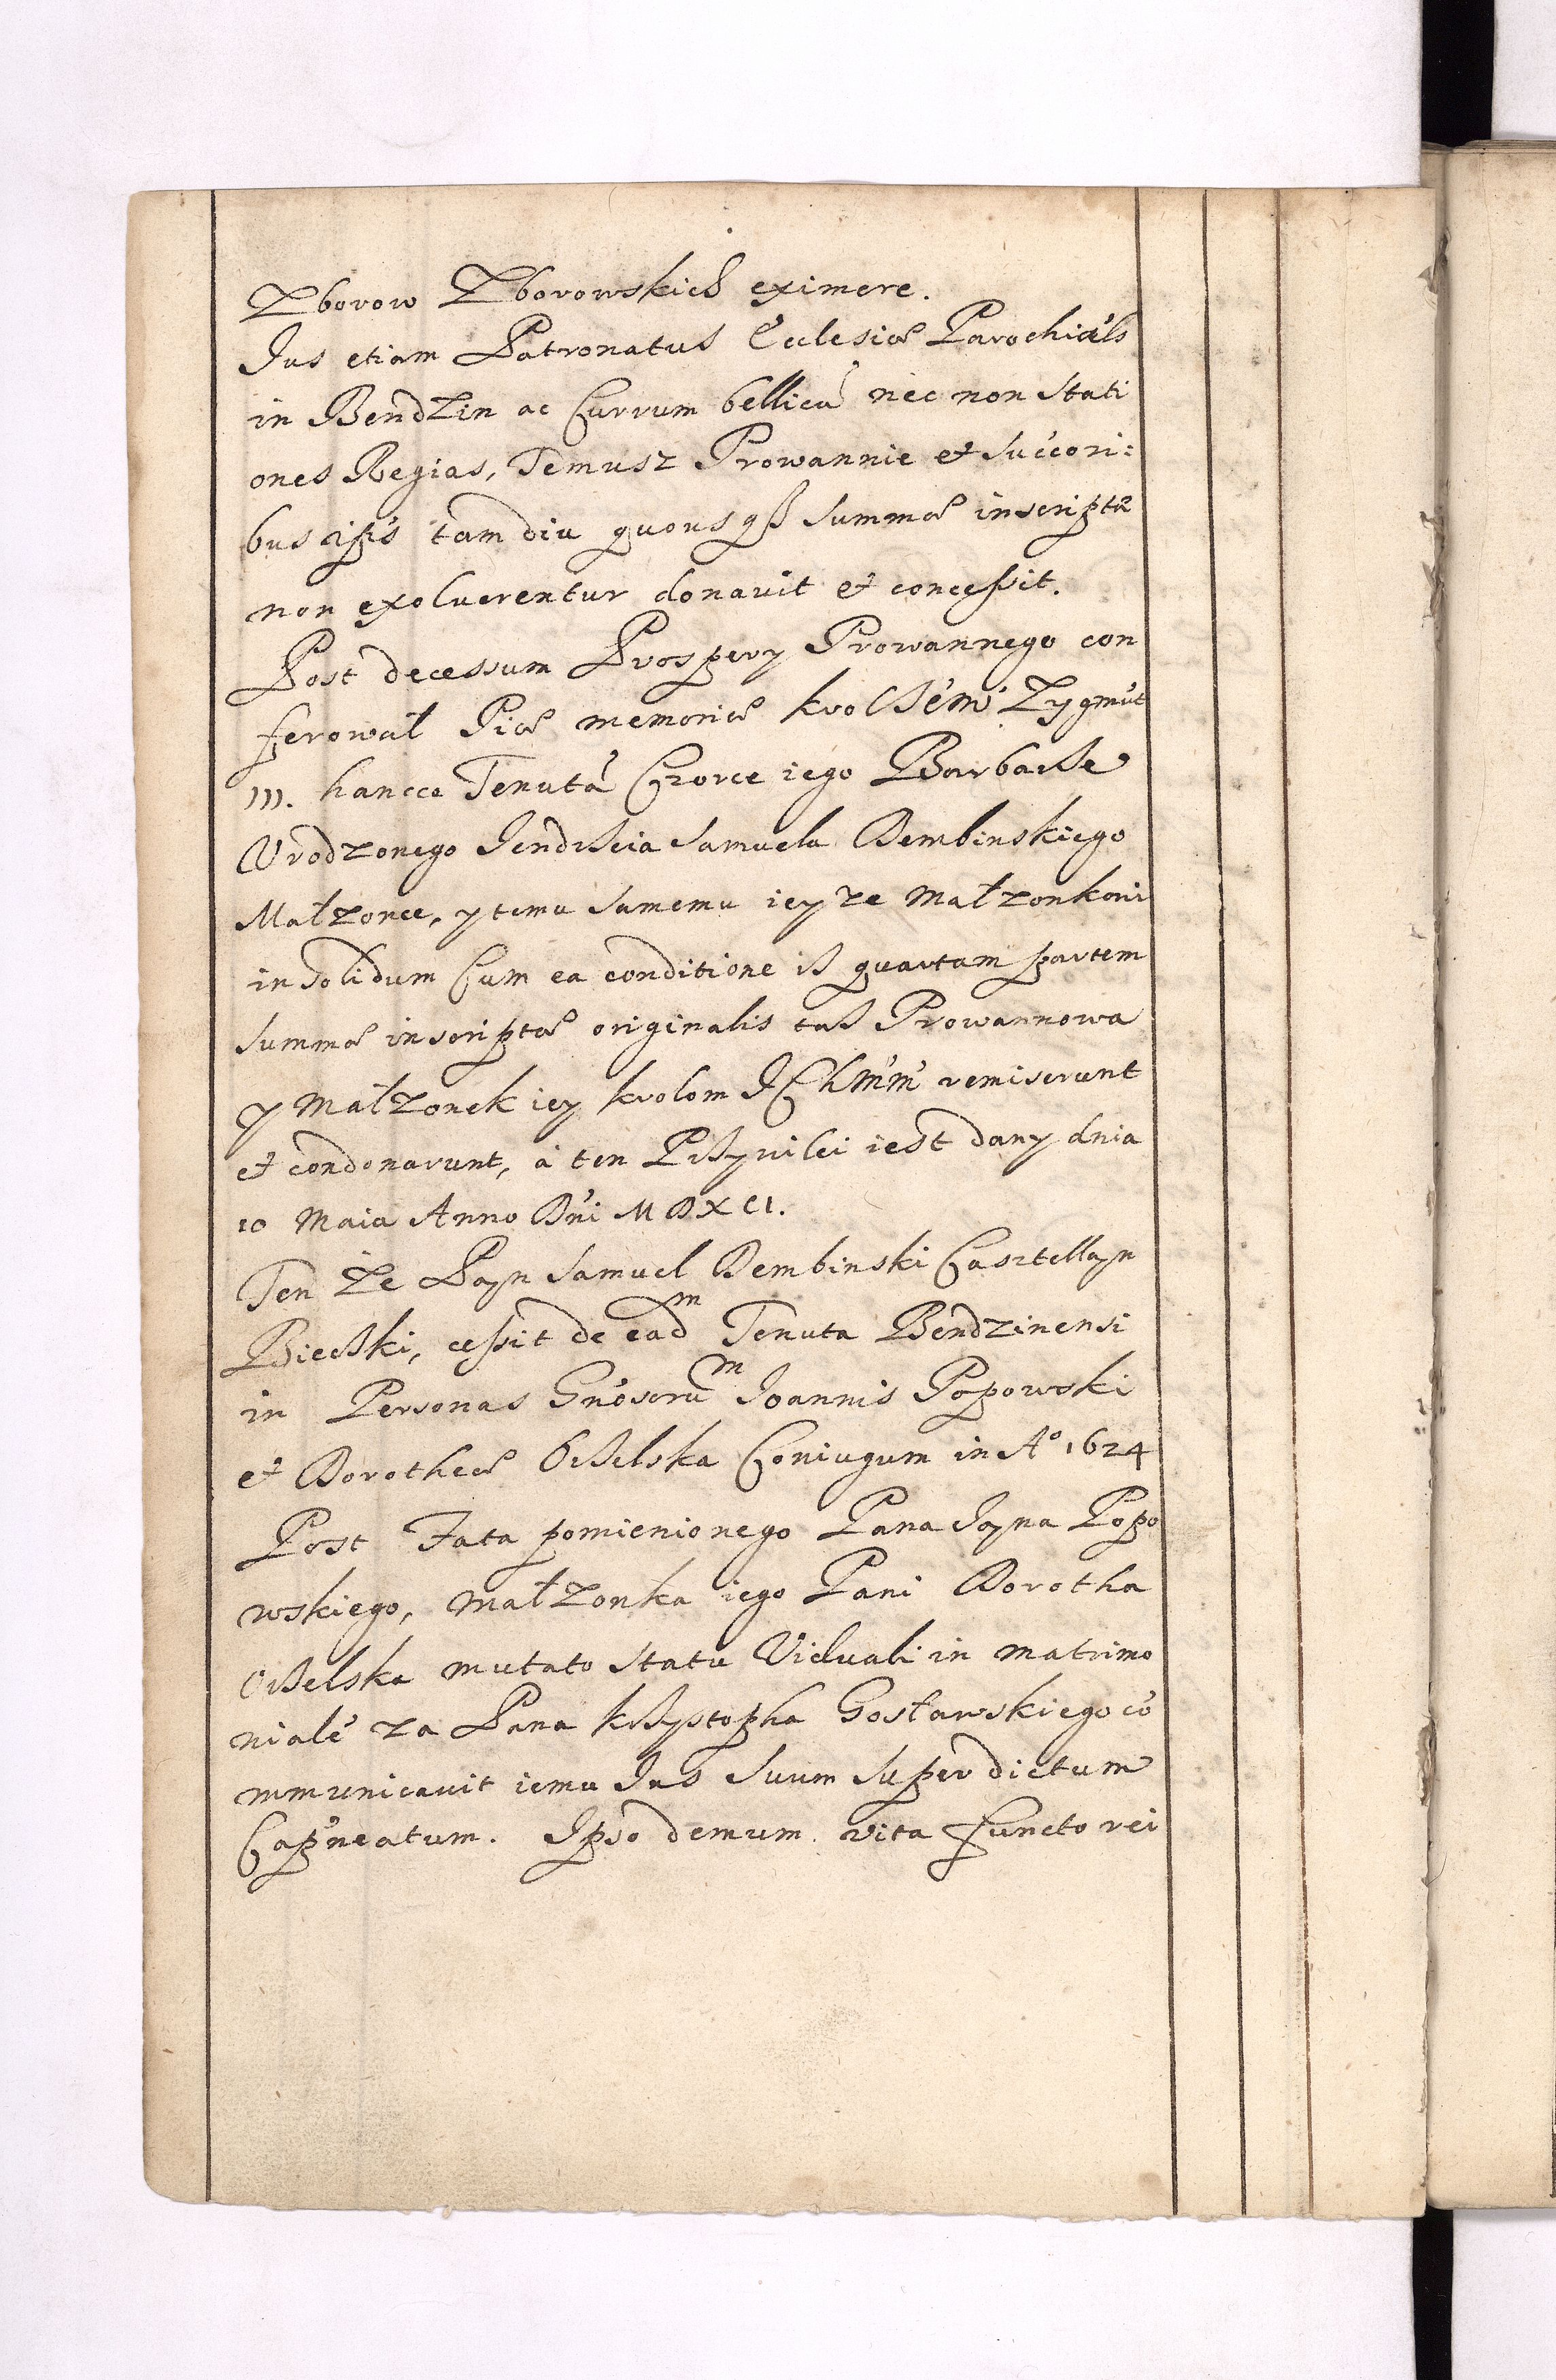 Zborow Zborowskich eximere.
Ius etiam Patronatus Ecclesiæ Parochiãls
in Bendzin ac Currum bellicũ nec non Stati
ones Regias, Temusz Prowannie et Succori:
bus ipĩs tamdiu quousq3 Summæ inscriptæ
non exoluerentur donauit et concessit.
Post decessum Prospery Prowannego con
ferował Piæ memoriæ krol Zygmũt
III. hancce Tenutã Czorce iego Barbarze
Vrodzonego Jendrzeia Samuela Dembinskiego
Małzonce, y temu samemu ieyze Małzonkowi
in Solidum Cum ea conditione isz quartam partem
Summæ inscriptæ originalis taz Prowannowa
y Małzonek iey krolom remiserunt
et condonarunt, á ten Przyuilei iest dany dnia
10 Maia Anno Dñi MDXCI.
Ten Ze Pan Samuel Dembinski Casztellan
Biecski, cessit de ead͠m Tenuta Bendzinensi
in Personas Gñosoru͠m Joannis Popowski
et Dorotheæ Orzelska Coniugum in Aº 1624
Post Fata pomienionego Pana Jana Popo
wskiego, Małzonka iego Pani Dorotha
Orzelska mutato Statu Viduali in matrimo
nialẽ za Pana krzystopha Gosławskiego cõ
mmunicauit iemu Ius Suum Super dictum
Cap̃neatum. Ipso demum vita functo rei